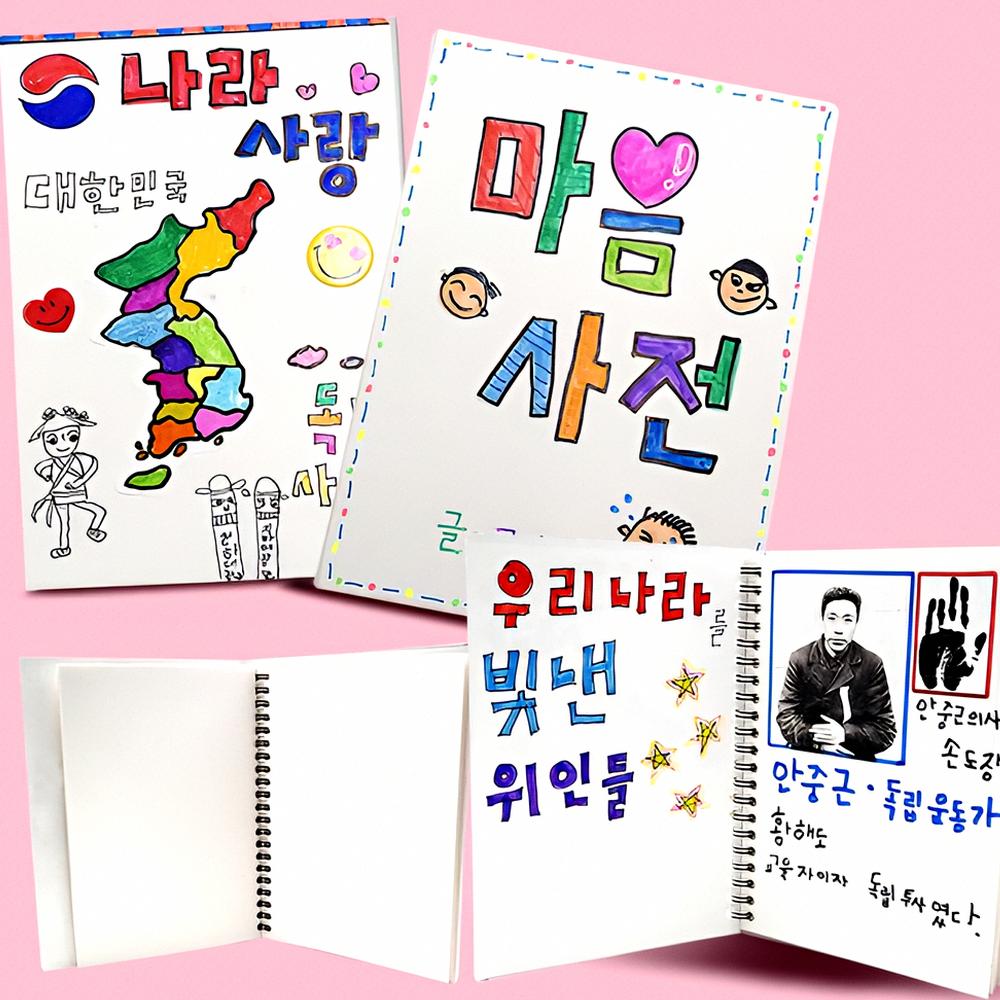 나라
사랑
대한민국
독
사
마음
사전
글
우리나라를
빛낸
위인들
안중근의사
손도장
안중근·독립운동가
황해도
교육자이자 독립투사였다.